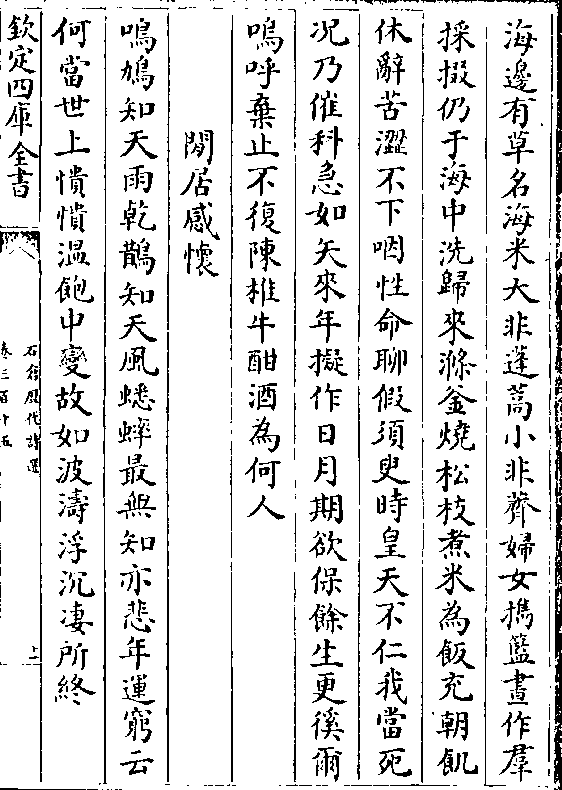 海邊有草名海米大非蓬蒿小非薺婦女攜籃晝作羣
採掇仍于海中洗歸來滌釜燒松枝煮米為飯充朝飢
休辭苦澀不下咽性命聊假須臾時皇天不仁我當死
况乃催科急如矢來年擬作日月期欲保餘生更徯爾
嗚呼棄止不復陳椎牛酣酒為何人
閒居感懷
鳴鳩知天雨乾鵲知天風蟋蟀最無知亦悲年運窮云
何當世上憒憒溫飽中變故如波濤浮沉凄所終
欽定四庫全書
石倉歷代詩選
卷三百十五
上